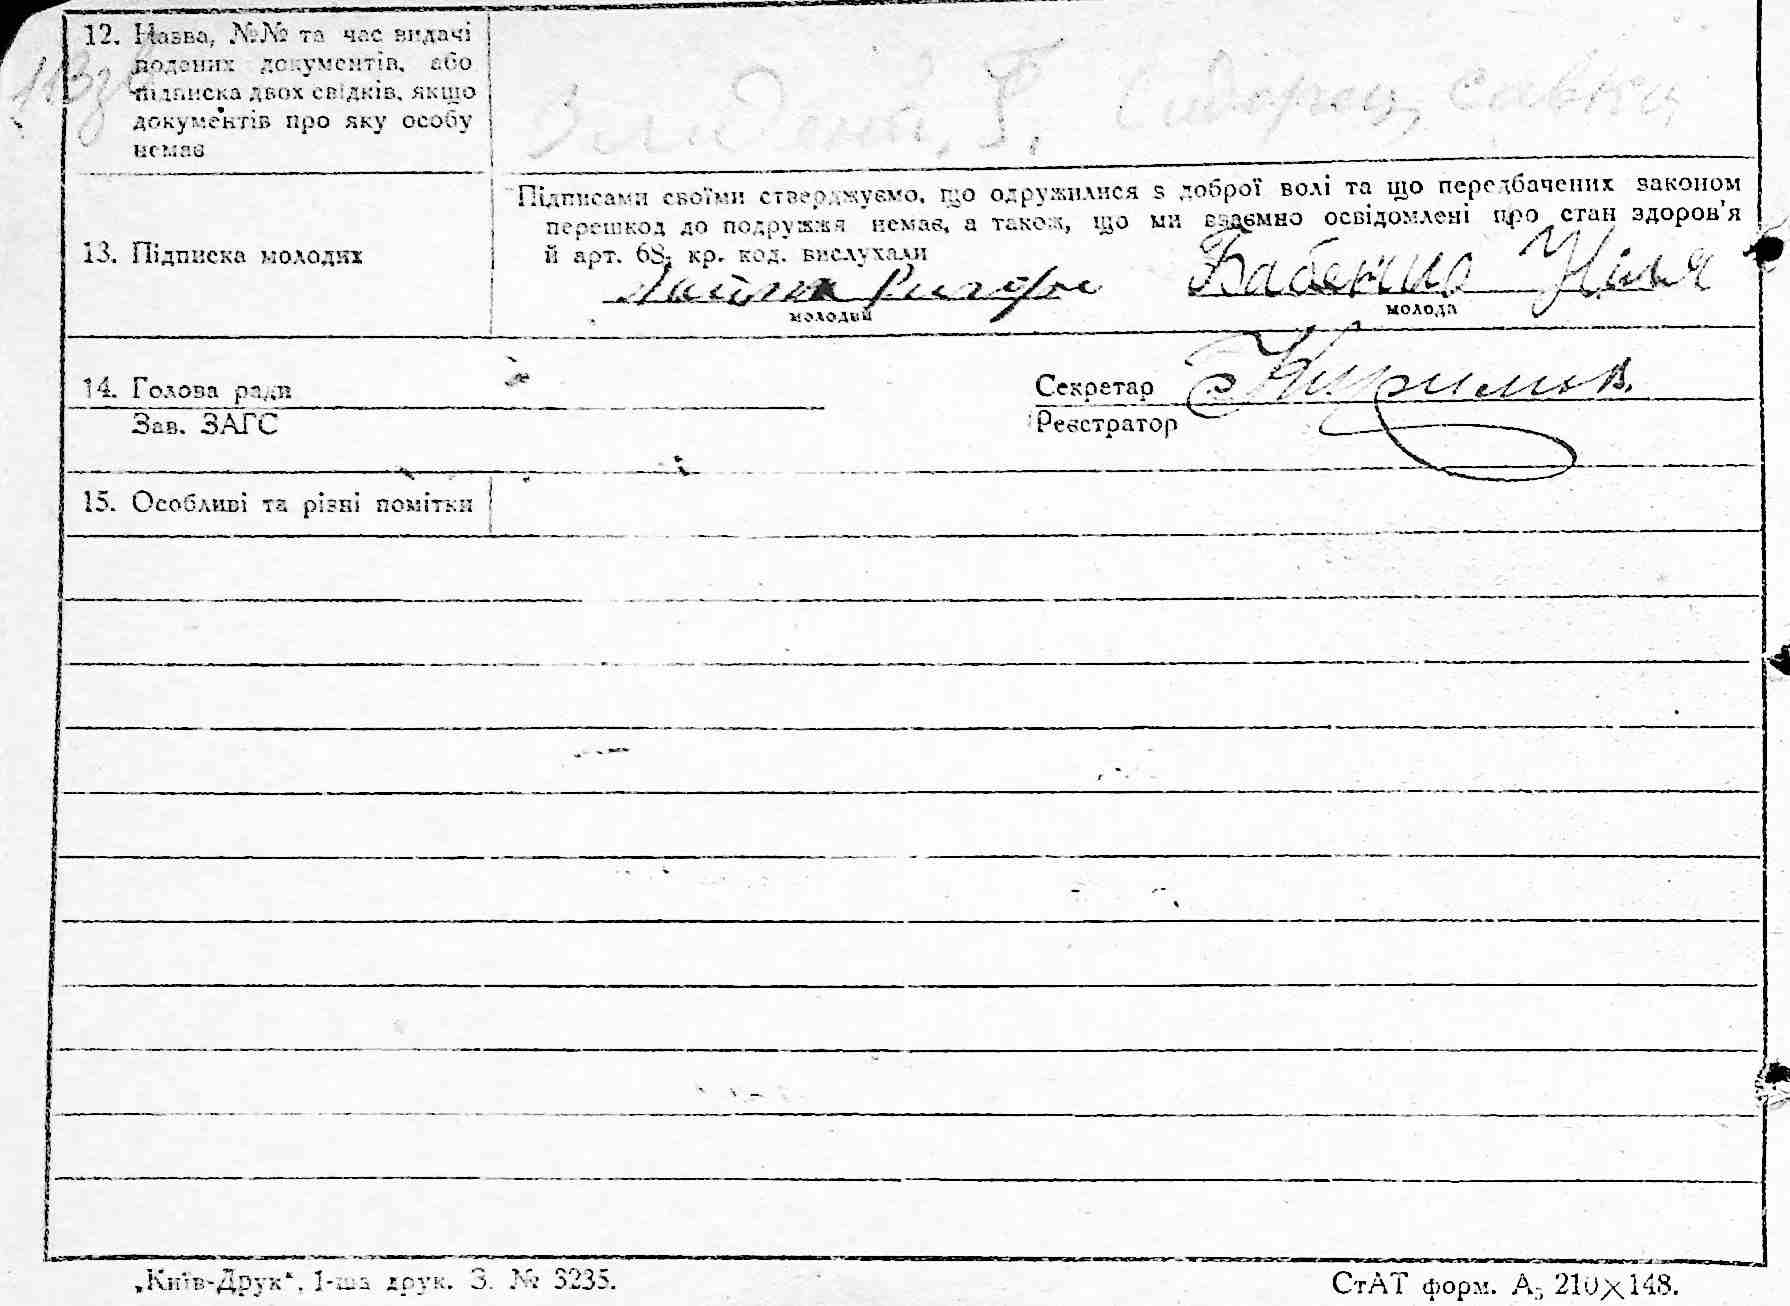 12. Назва, №№ та час видачі
поданих документів, або
підписка двох свідків, якщо
документів про яку особу
немає
Сидорец, Савка
Підписами своїми стверджуємо, що одружилися з доброї волі та що передбачених законом
перешкод до подружжя немає, а також, що ми взаємно освідомлені про стан здоров'я
13. Підписка молодих
й арт. 68, кр. код. вислухали
Бабенко
молодий
молода
14. Голова ради
Секретар
Зав. ЗАГС
Реєстратор
15. Особливі та різні помітки
„Київ-Друк“, 1-ша друк. З. № 3235.
СтАТ форм. А5 210×148.